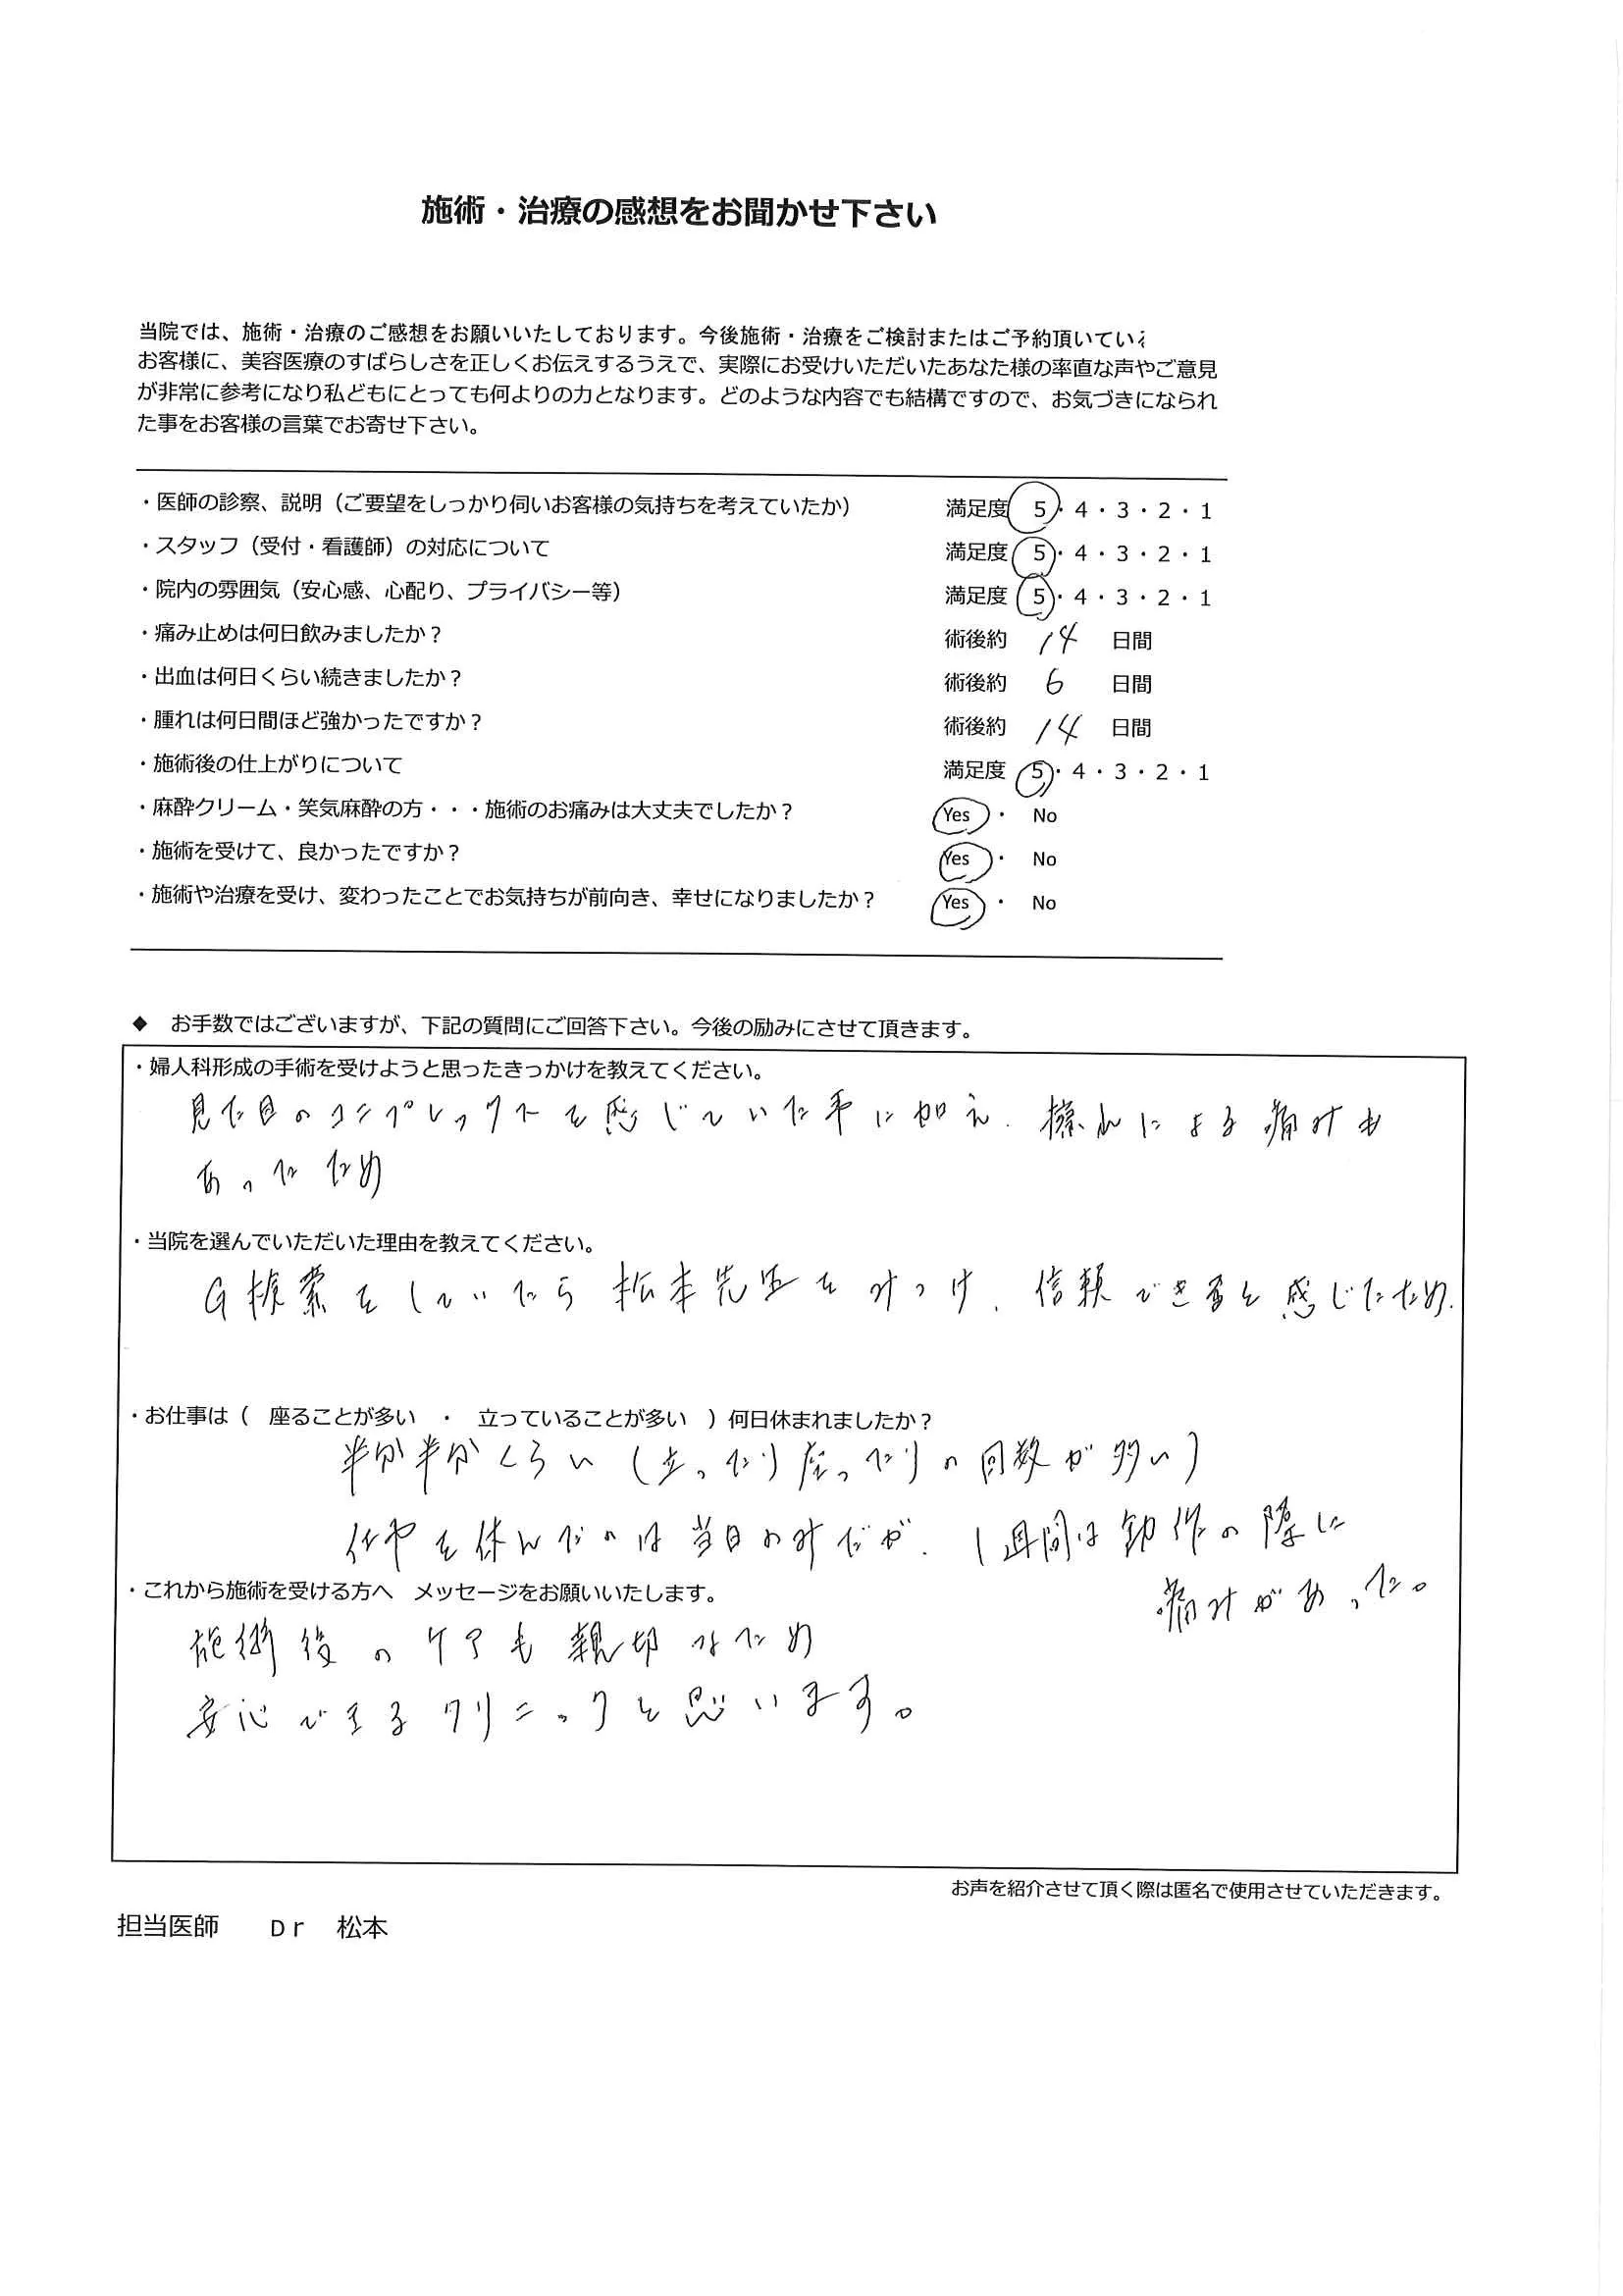 施術・治療の感想をお聞かせ下さい
当院では、施術・治療のご感想をお願いいたしております。今後施術・治療をご検討またはご予約頂いてい
お客様に、美容医療のすばらしさを正しくお伝えするうえで、実際にお受けいただいたあなた様の率直な声やご意見
が非常に参考になり私どもにとっても何よりの力となります。どのような内容でも結構ですので、お気づきになられ
た事をお客様の言葉でお寄せ下さい。
・医師の診察、説明（ご要望をしっかり伺いお客様の気持ちを考えていたか） 満足度 5・4・3・2・1
・スタッフ（受付・看護師）の対応について 満足度 5・4・3・2・1
・院内の雰囲気（安心感、心配り、プライバシー等） 満足度 5・4・3・2・1
・痛み止めは何日飲みましたか？ 術後約 14 日間
・出血は何日くらい続きましたか？ 術後約 6 日間
・腫れは何日間ほど強かったですか？ 術後約 14 日間
・施術後の仕上がりについて 満足度 5・4・3・2・1
・麻酔クリーム・笑気麻酔の方・・・施術のお痛みは大丈夫でしたか？ Yes ・ No
・施術を受けて、良かったですか？ Yes ・ No
・施術や治療を受け、変わったことでお気持ちが前向き、幸せになりましたか？ Yes ・ No
◆ お手数ではございますが、下記の質問にご回答下さい。今後の励みにさせて頂きます。
・婦人科形成の手術を受けようと思ったきっかけを教えてください。
見た目のコンプレックスを感じていた事に加え、擦れによる痛みも
あったため
・当院を選んでいただいた理由を教えてください。
G検索をしていたら松本先生をみつけ、信頼できると感じたため。
・お仕事は（ 座ることが多い ・ 立っていることが多い ）何日休まれましたか？
半分半分くらい（立ったり座ったりの回数が多い）
仕事を休んだのは当日のみだが、1週間は動作の際に
痛みがあった。
・これから施術を受ける方へ メッセージをお願いいたします。
施術後のケアも親切なため
安心できるクリニックと思います。
お声を紹介させて頂く際は匿名で使用させていただきます。
担当医師 Dr 松本